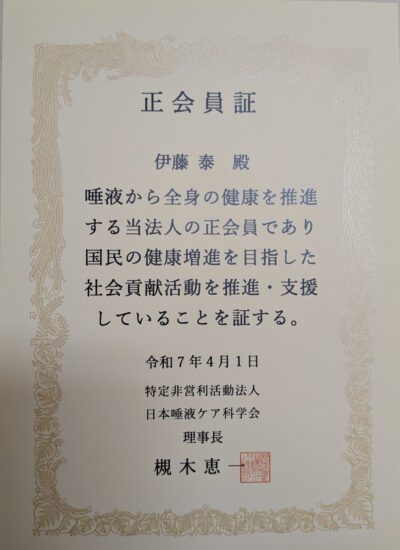 正会員証
伊藤泰 殿
唾液から全身の健康を推進
する当法人の正会員であり
国民の健康増進を目指した
社会貢献活動を推進・支援
していることを証する。
令和7年4月1日
特定非営利活動法人
日本唾液ケア科学会
理事長
槻木恵一